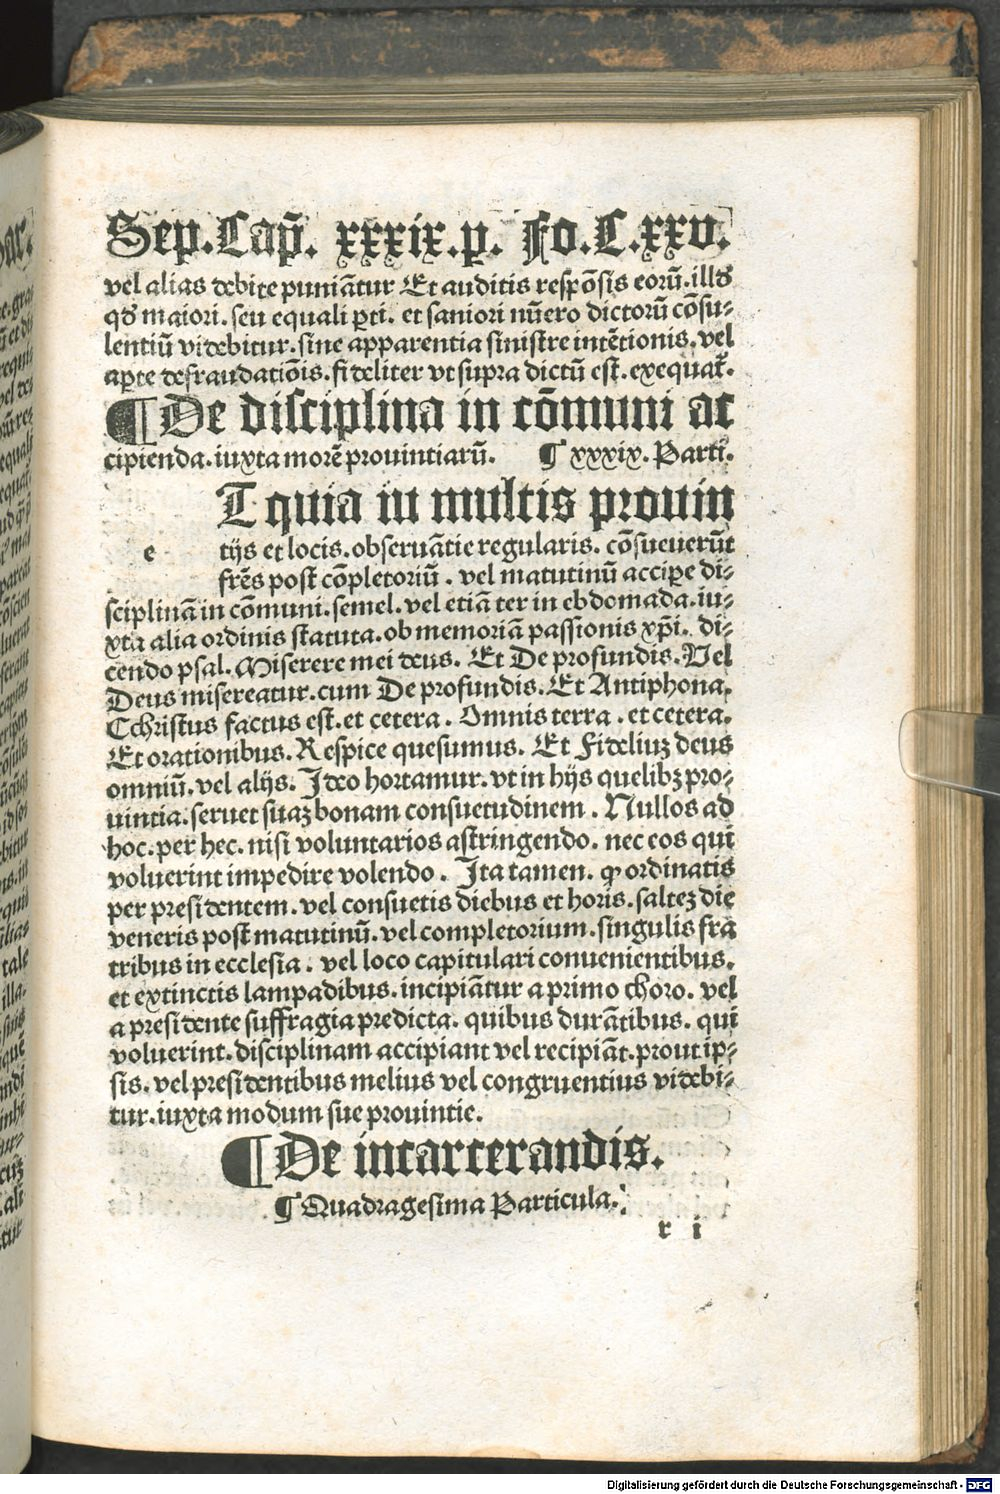 Sep. Cap̃. xxxix. p. Fo. C. xxv.
vel alias debite puniãtur Et auditis respõsis eorũ. illud
qd̛ maiori. seu equali ꝑti. et saniori nũero dictorũ cõsu-
lentiũ videbitur. sine apparentia sinistre intẽtionis. vel
aꝑte defraudatiõis. fideliter vt supra dictũ est. exequat̃.
¶ De disciplina in cõmuni ac
cipienda. iuxta morẽ prouintiarũ. ¶ xxxix. Parti.
e T quia in multis prouin
tijs et locis. obseruãtie regularis. cõsueuerũt
fr̃es post cõpletoriũ. vel matutinũ acciꝑe di-
sciplinã in cõmuni. semel. vel etiã ter in ebdomada. iu-
xta alia ordinis statuta. ob memoriã passionis xp̃i. di-
cendo psal. Miserere mei deus. Et De profundis. Vel
Deus misereatur. cum De profundis. Et Antiphona.
Cchristus factus est. et cetera. Omnis terra. et cetera.
Et orationibus. Respice quesumus. Et Fideliuz deus
omniũ. vel alijs. Ideo hortamur. vt in hijs quelibꝫ pro-
uintia. seruet suaz bonam consuetudinem. Nullos ad
hoc. per hec. nisi voluntarios astringendo. nec eos qui
voluerint impedire volendo. Ita tamen. ꝙ ordinatis
per presidentem. vel consuetis diebus et horis. saltez die
veneris post matutinũ. vel completorium. singulis fra
tribus in ecclesia. vel loco capitulari conuenientibus.
et extinctis lampadibus. incipiãtur a primo choro. vel
a presidente suffragia predicta. quibus durãtibus. qui
voluerint. disciplinam accipiant vel recipiãt. prout ip-
sis. vel presidentibus melius vel congruentius videbi-
tur. iuxta modum sue prouintie.
¶ De incarcerandis.
¶ Quadragesima Particula.
r i
Digitalisierung gefördert durch die Deutsche Forschungsgemeinschaft - DFG